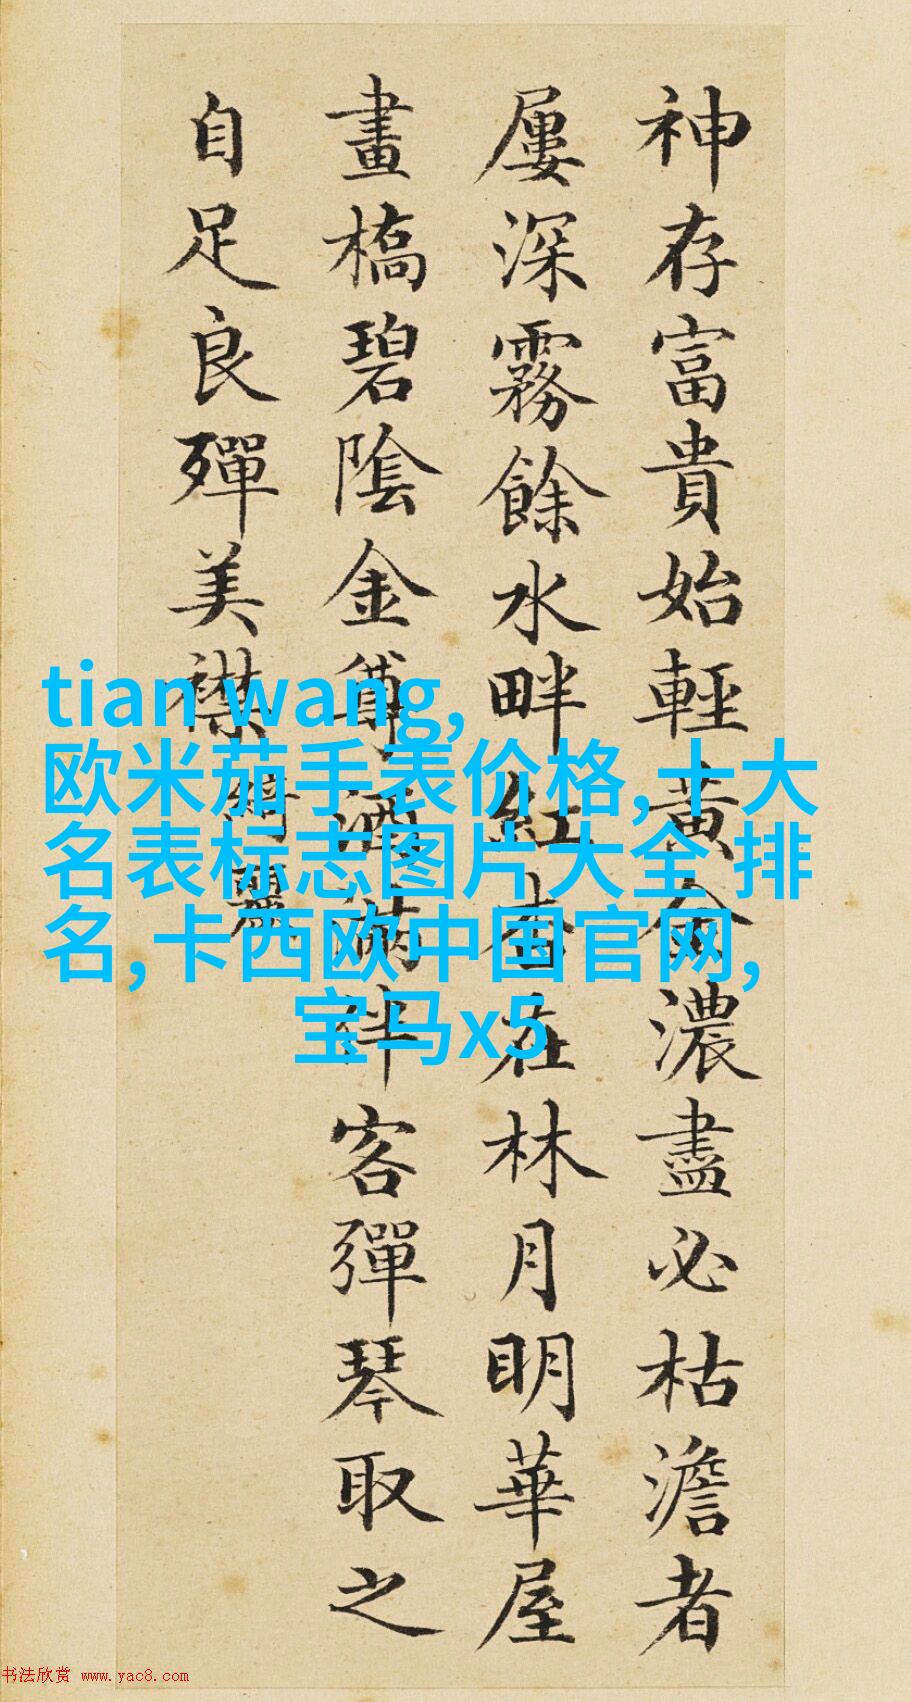 神存富貴始輕黃金濃盡必枯澹者
屢深霧餘水畔紅杏在林月明華屋
畫橋碧陰金尊酒滿伴客彈琴取之
自足良殫美襟
綺麗
tian wang,
欧米茄手表价格,十大
名表标志图片大全 排
名,卡西欧中国官网,
宝马x5
书法欣赏 www.yac8.com